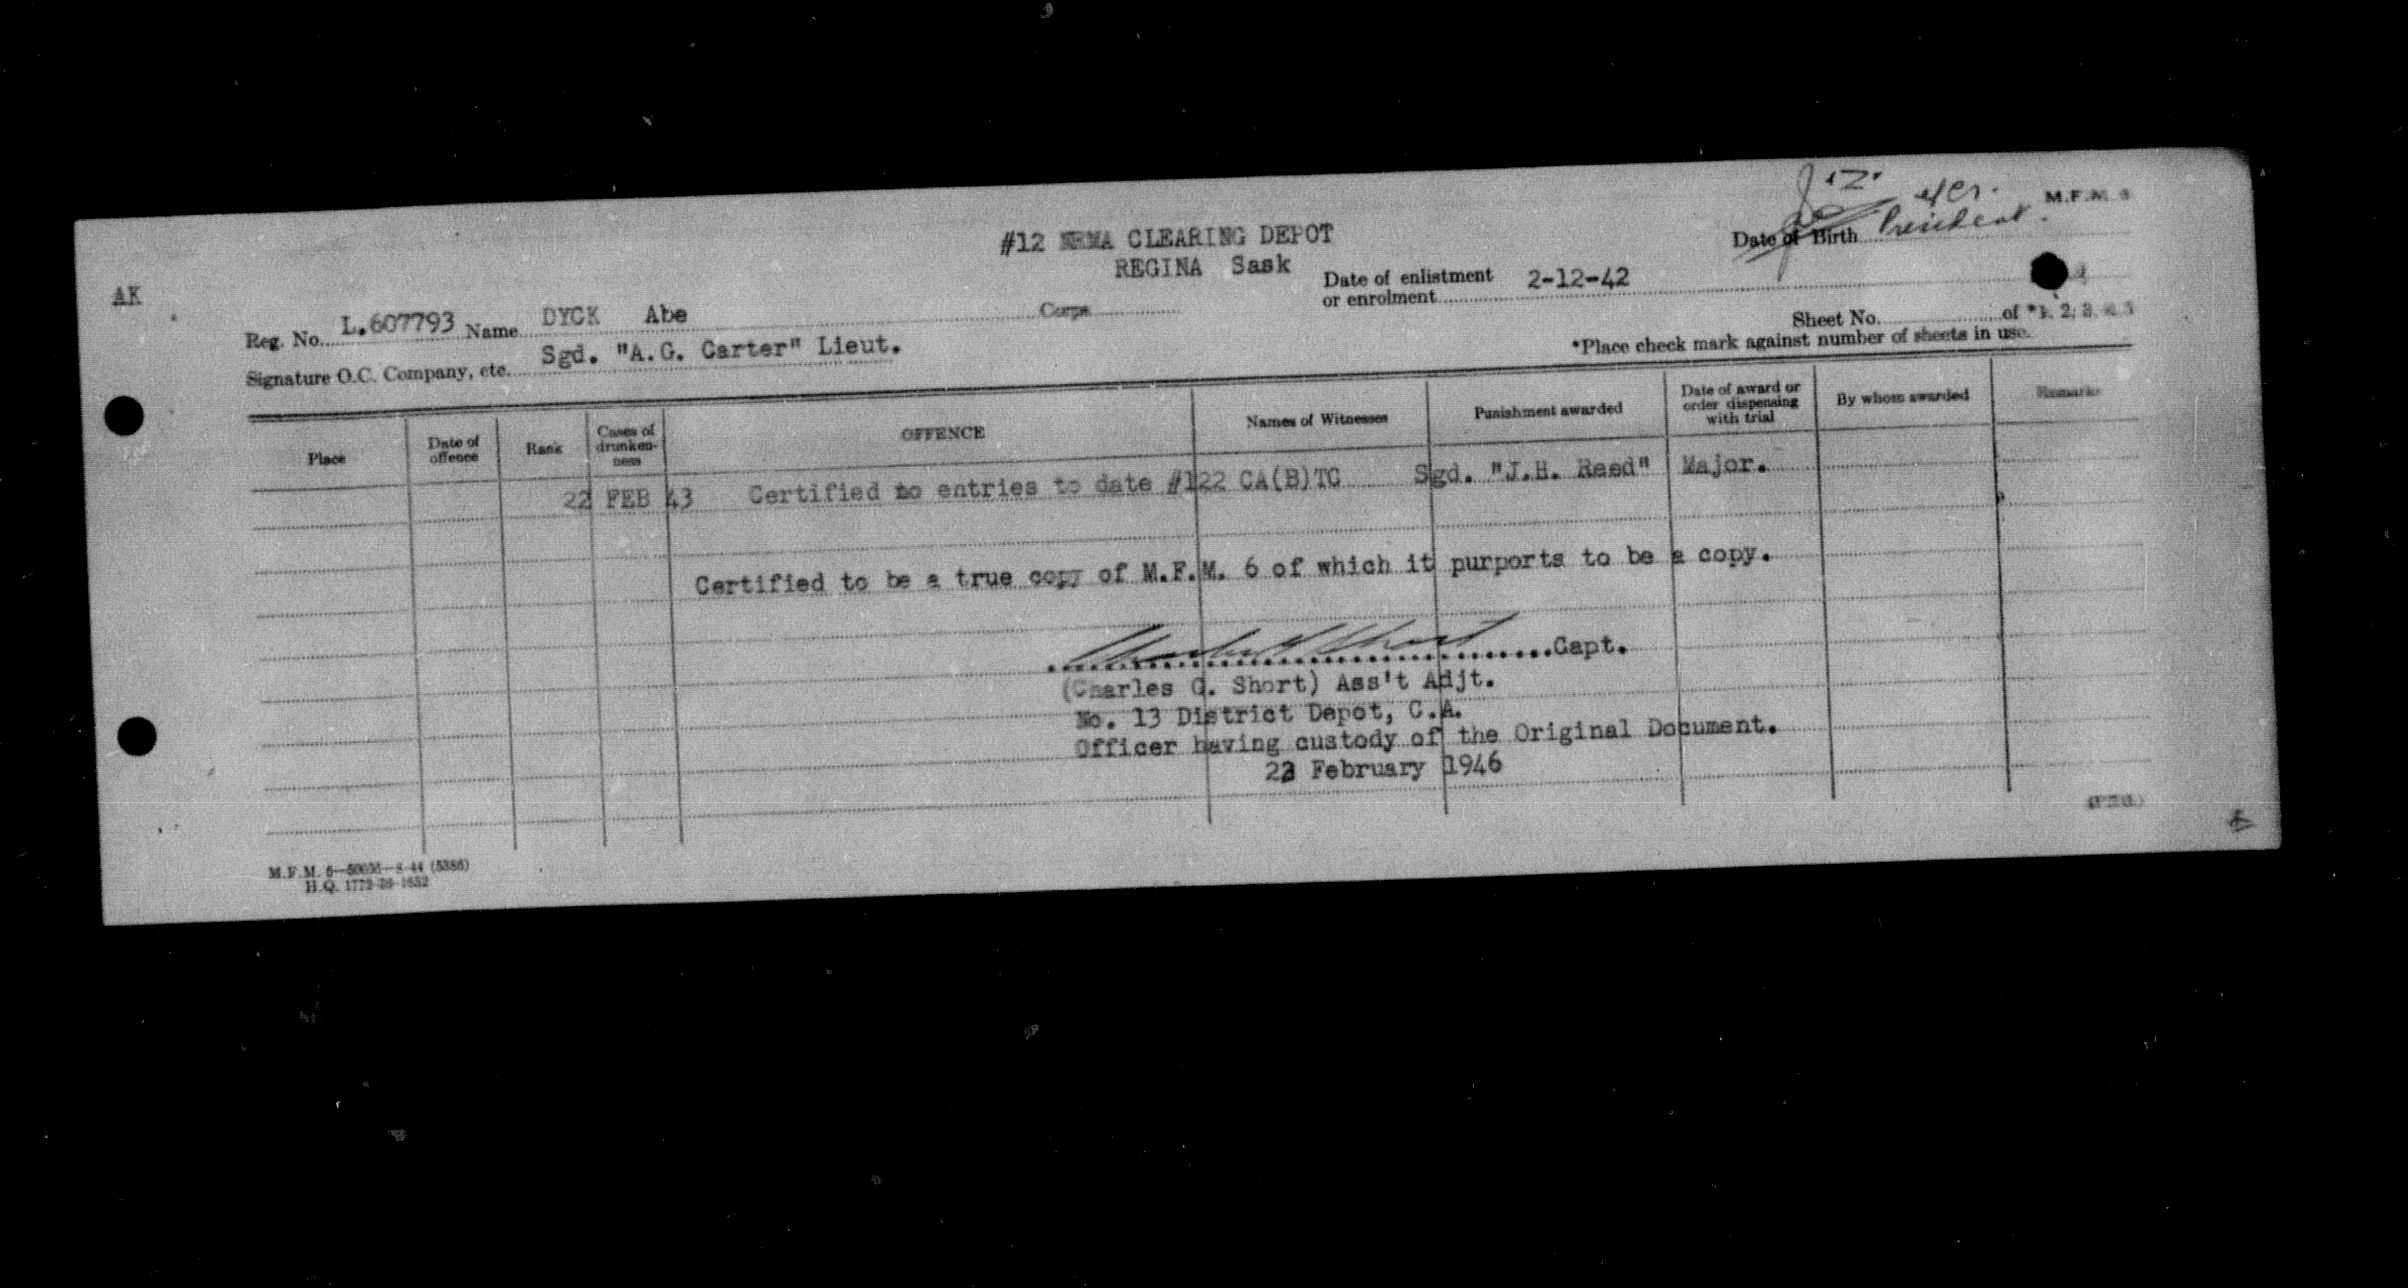 M.F.M. 6
#12 NRMA CLEARING DEPOT
REGINA Sask
Date of Birth President.
AK
Date of enlistment or enrolment 2-12-42
Reg. No. L.607793 Name DYCK Abe Corps
Sheet No. of *1, 2, 3, 4, 5
Signature O.C. Company, etc. Sgd. "A.G. Carter" Lieut.
*Place check mark against number of sheets in use.
Place Date of offence Rank Cases of drunken-ness OFFENCE Names of Witnesses Punishment awarded Date of award or order dispensing with trial By whom awarded Remarks
22 FEB 43 Certified no entries to date #122 CA(B)TC Sgd. "J.H. Reed" Major.
Certified to be a true copy of M.F.M. 6 of which it purports to be a copy.
Capt.
(Charles G. Short) Ass't Adjt.
No. 13 District Depot, C.A.
Officer having custody of the Original Document.
February 1946
(P.T.O.)
M.F.M. 6
H.Q. 1772-39-1652